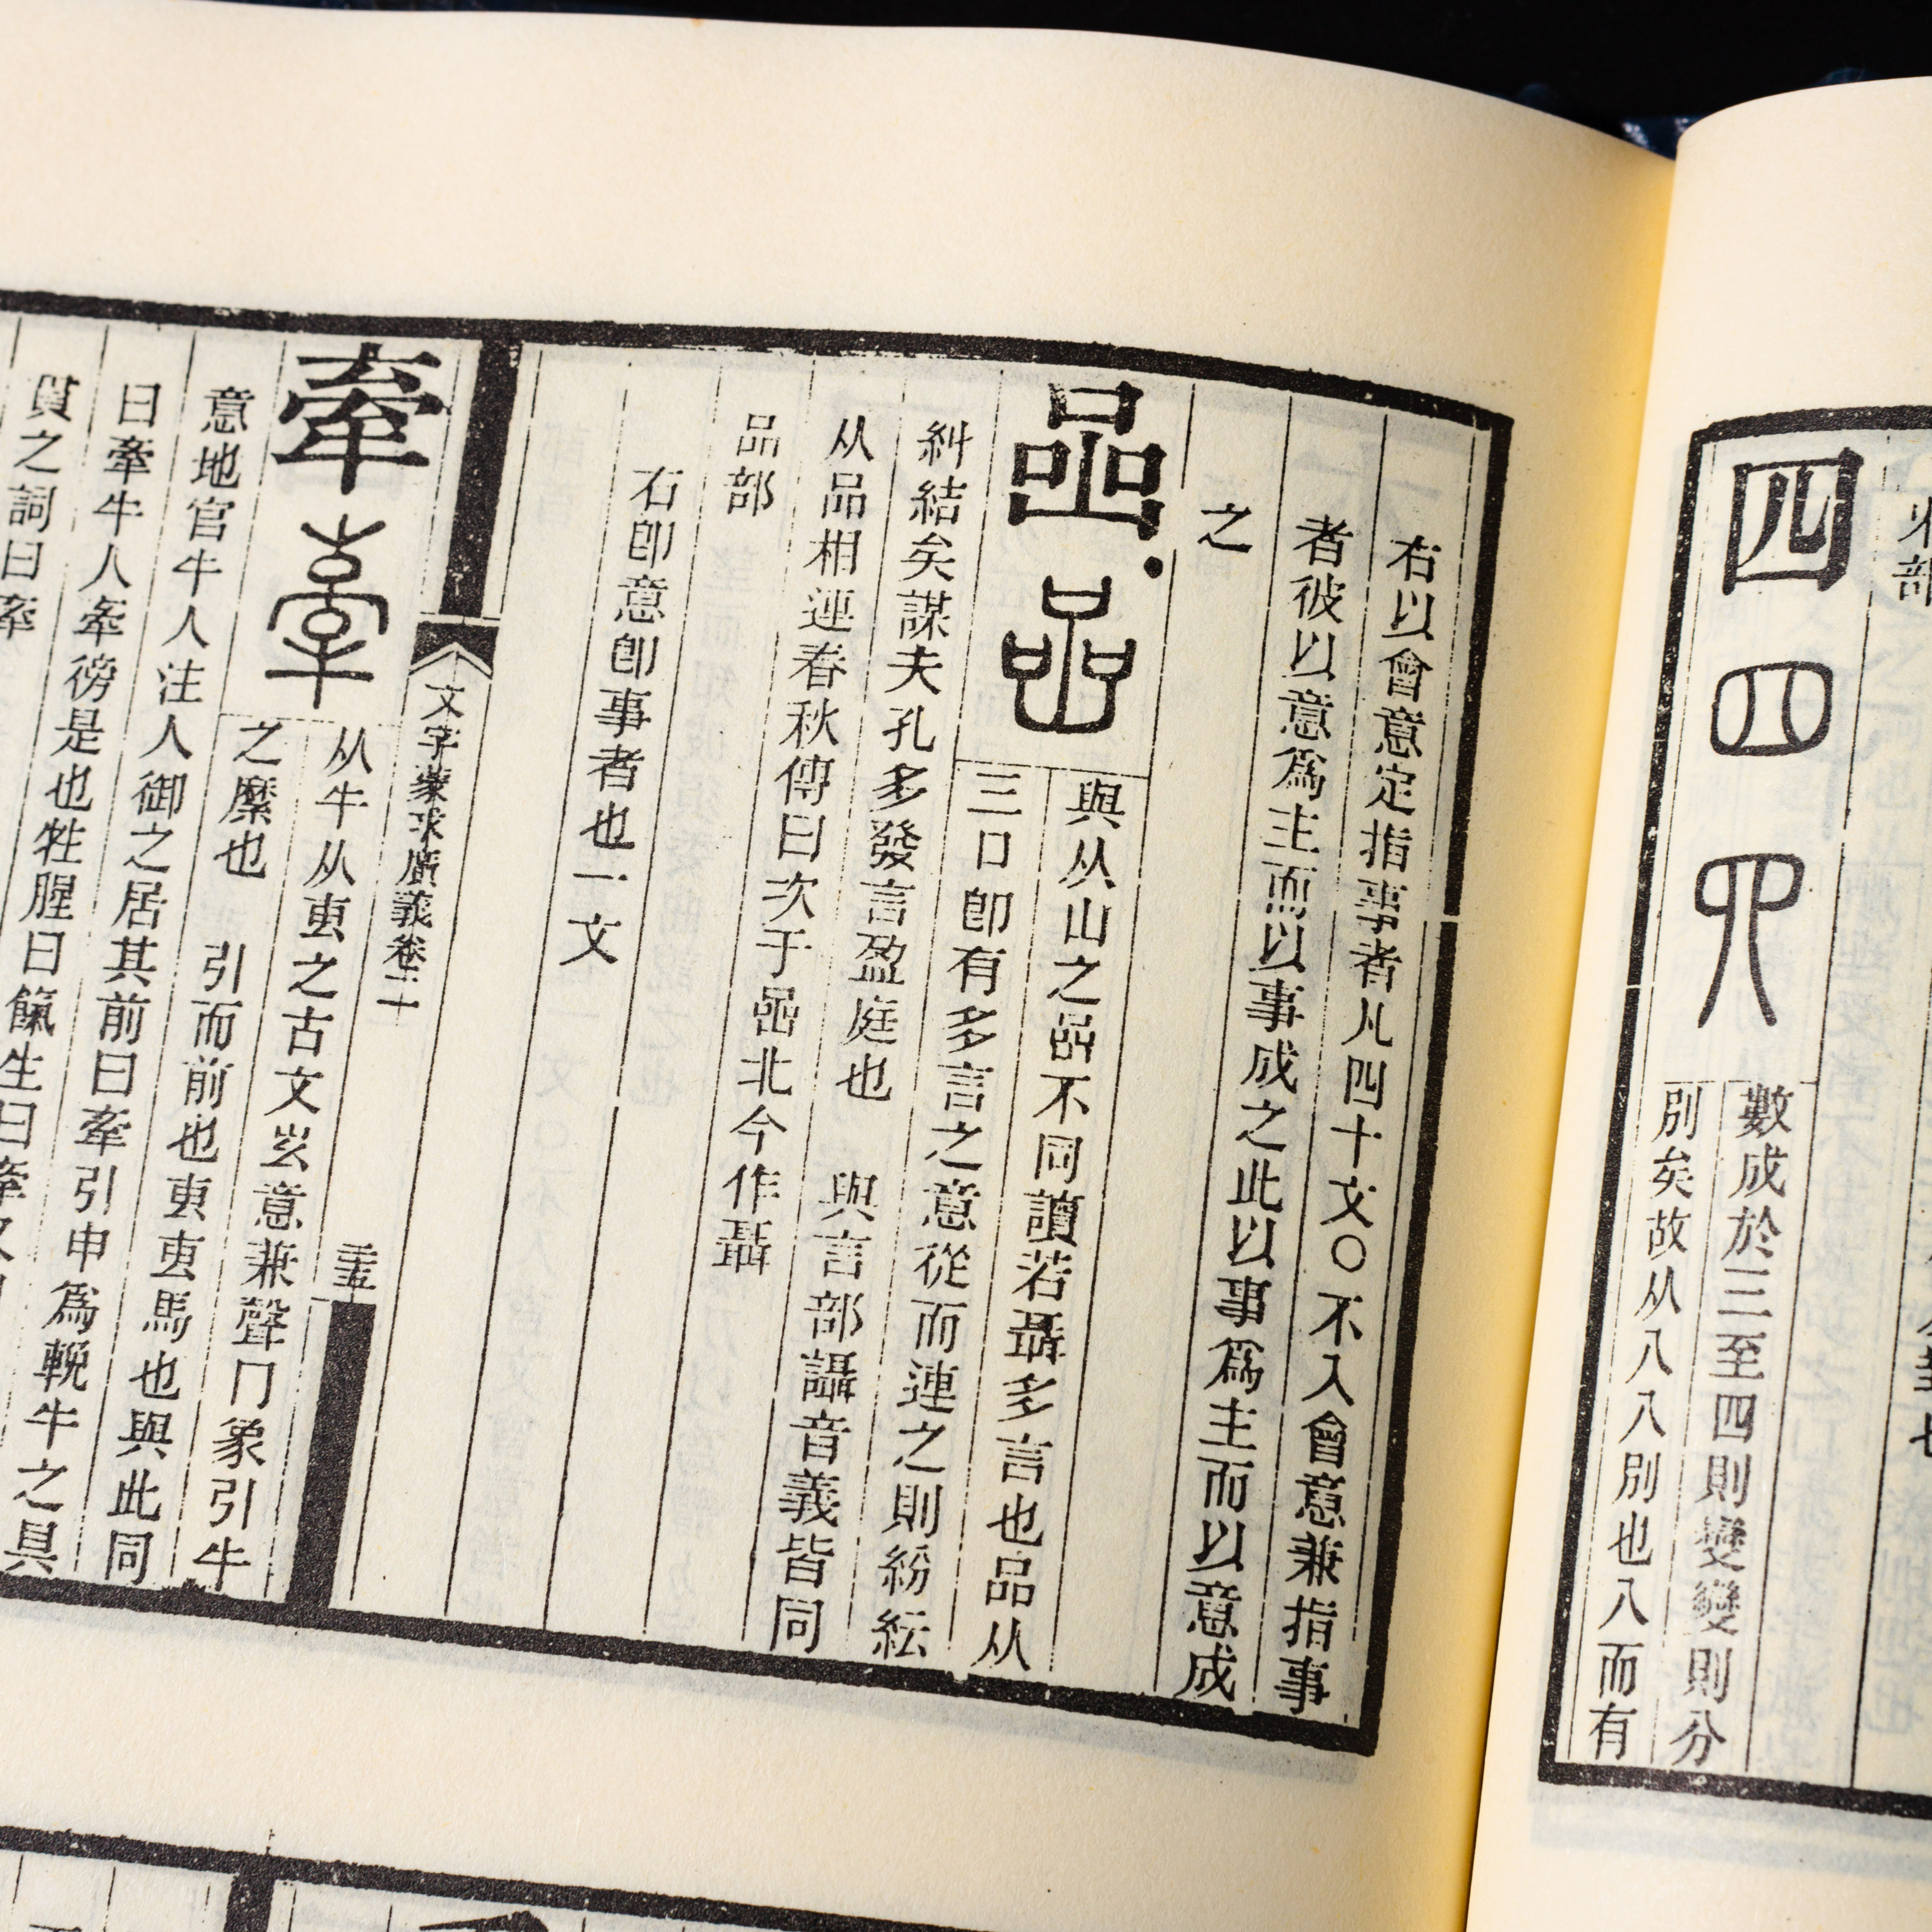 四
數成於三至四則變變則分
別矣故从八八別也八而有
右以會意定指事者凡四十文〇不入會意兼指事
者彼以意爲主而以事成之此以事爲主而以意成
之
嵒
與从山之嵒不同讀若聶多言也品从
三口卽有多言之意從而連之則紛紜
糾結矣謀夫孔多發言盈庭也 與言部讘音義皆同
从品相連春秋傳曰次于嵒北今作聶
品部
右卽意卽事者也一文
文字蒙求廣義卷三十
牽
从牛从叀之古文玄意兼聲冂象引牛
之縻也 引而前也叀叀馬也與此同
意地官牛人注人御之居其前曰牽引申爲輓牛之具
曰牽牛人牽徬是也牲腥曰餼生曰牽
貫之詞曰牽